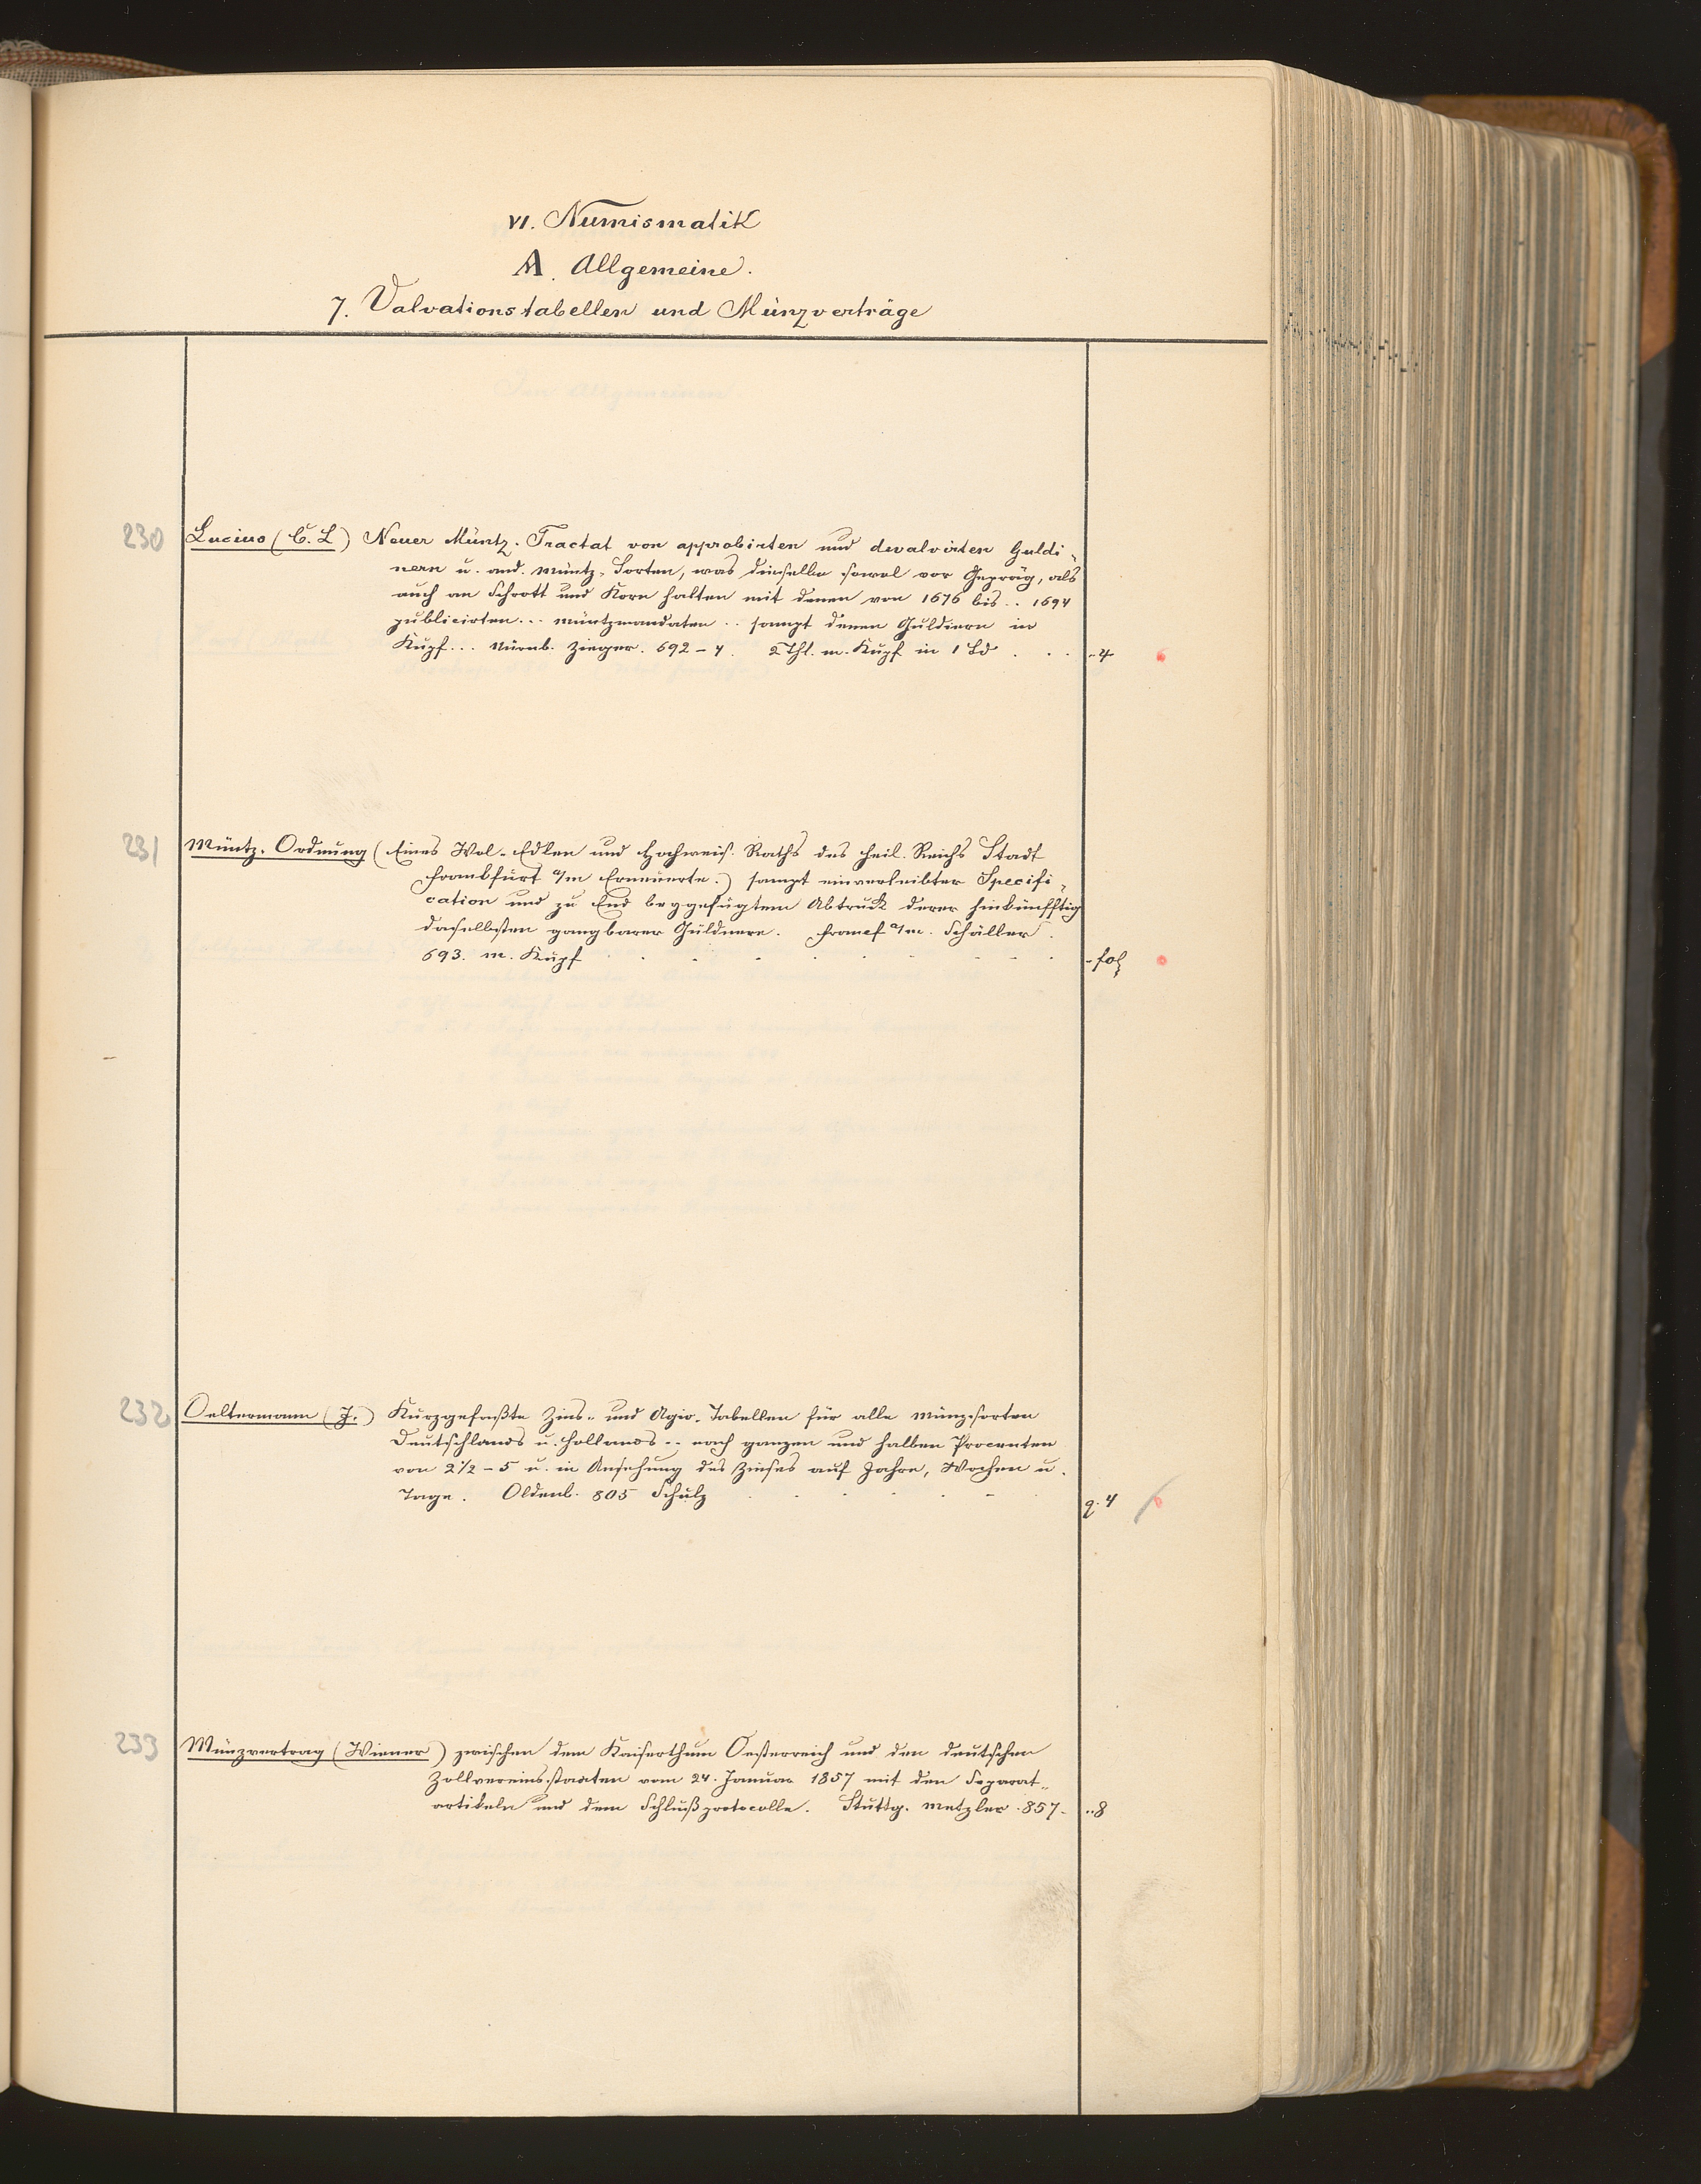 VI. Numismatik
A. Allgemeine.
7. Valvationstabellen und Münzverträge
230 Lucius (C. L) Neuer Müntz-Tractat von approbirten und devalvirten Guldi-
nern u. and. Müntz-Sorten, was dieselbe sowol vor Gepräg, als
auch an Schrott und Korn halten mit denen von 1676 bis .. 1694
publicirten... Müntzmandaten .. sampt denen Guldiern in
Kupf... Nürnb. Zieger. 692-4. 2 Thl. m. Kupf in 1 Bd . . . .. 4
231 Müntz-Ordnung (Eines Wol-Edlen und Hochweis. Raths des heil. Reichs Stadt
Frankfurt a/m Erneuerte.) sampt einverleibter Specifi-
cation und zu End beygefügtem Abtruck derer hinkünfftig
daselbsten gangbarer Güldnere. Francf a/m. Schäller.
693. m. Kupf . . . . . . . - fol
232 Oeltermann (J.) Kurzgefaßte Zins- und Agio-Tabellen für alle Münzsorten
Deutschlands u. Hollands .. nach ganzen und halben Procenten
von 2 1/2 - 5 u. in Ansehung des Zinses auf Jahre, Wochen u.
Tage. Oldenb. 805 Schulz . . . . . q. 4
233 Münzvertrag (Wiener) zwischen dem Kaiserthum Oesterreich und den deutschen
Zollvereinsstaaten vom 24. Januar 1857 mit den Separat-
artikeln und dem Schlußprotocolle. Stuttg. Metzler. 857- .. 8